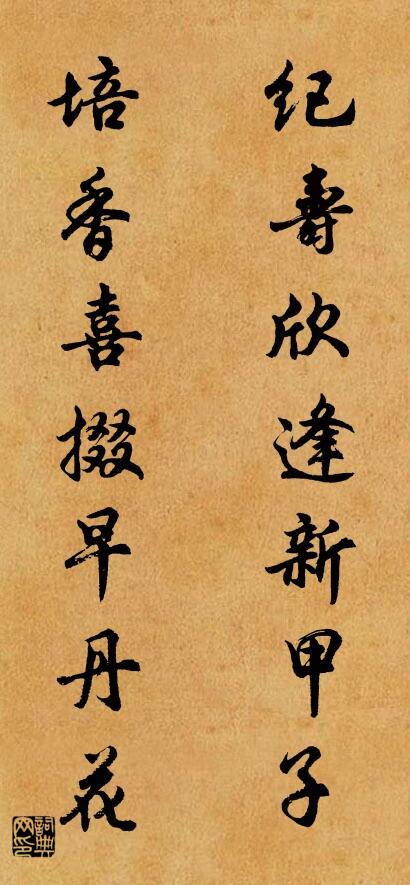 纪壽欣逢新甲子
培香喜掇早丹花
詞典
网印